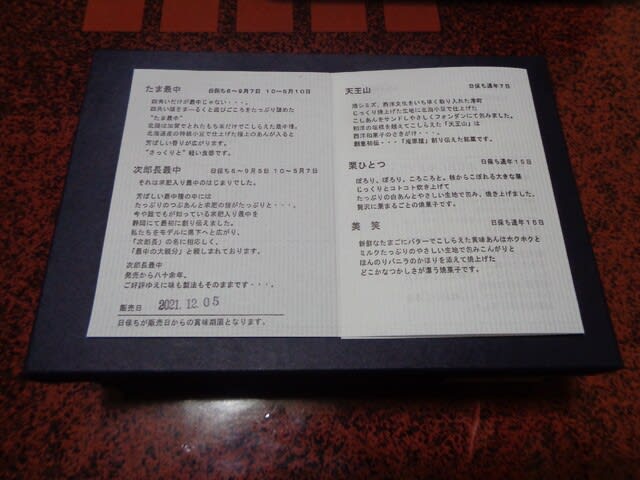 たま最中 日保ち6～9月7日 10～5月10日
四角いだけが最中じゃない・・・。
四角い頭をまーるくと遊びごころをたっぷり詰めた
"たま最中"
北陸は加賀でとれたもち米だけでこしらえた最中種。
北海道産の特級小豆で仕上げた極上のあんが入ると
芳ばしい香りが広がります。
"さっくりと" 軽い食感です。
次郎長最中 日保ち6～9月5日 10～5月7日
それは求肥入り最中のはじまりでした。
芳ばしい最中種の中には
たっぷりのつぶあんと求肥の技がたっぷりと・・・。
今や誰でもが知っている求肥入り最中を
静岡にて最初に創り伝えました。
私たちをモデルに県下へと広がり、
「次郎長」の名に相応しく、
「最中の大親分」と親しまれております。
次郎長最中
発売から八十余年、
ご好評ゆえに味も製法もそのままです・・・。
販売日 2021.12.05
日保ちが販売日からの賞味期限となります。
天王山 日保ち通年7日
港シミズ、西洋文化をいちはやく取り入れた港町
じっくり焼上げた生地に北海小豆で仕上げた
こしあんをサンドしやさしくフォンダンにて包みました。
和洋の垣根を越えてこしらえた「天王山」は
西洋和菓子のさきがけ・・・。
創業初伝・・・「庵原屋」創り伝えた銘菓です。
栗ひとつ 日保ち通年15日
ぽろり、ぽろり、ころころと。枝からこぼれる大きな栗。
じっくりとコトコト炊き上げて
たっぷりの白あんとやさしい生地で包み、焼き上げました。
贅沢に栗まるごとの焼菓子です。
美 笑 日保ち通年15日
新鮮なたまごにバターでこしらえた黄味あんはホクホクと
ミルクたっぷりのやさしい生地で包みこんがりと
ほんのりバニラのかほりを添えて焼上げた
どこかなつかしさが漂う焼菓子です。